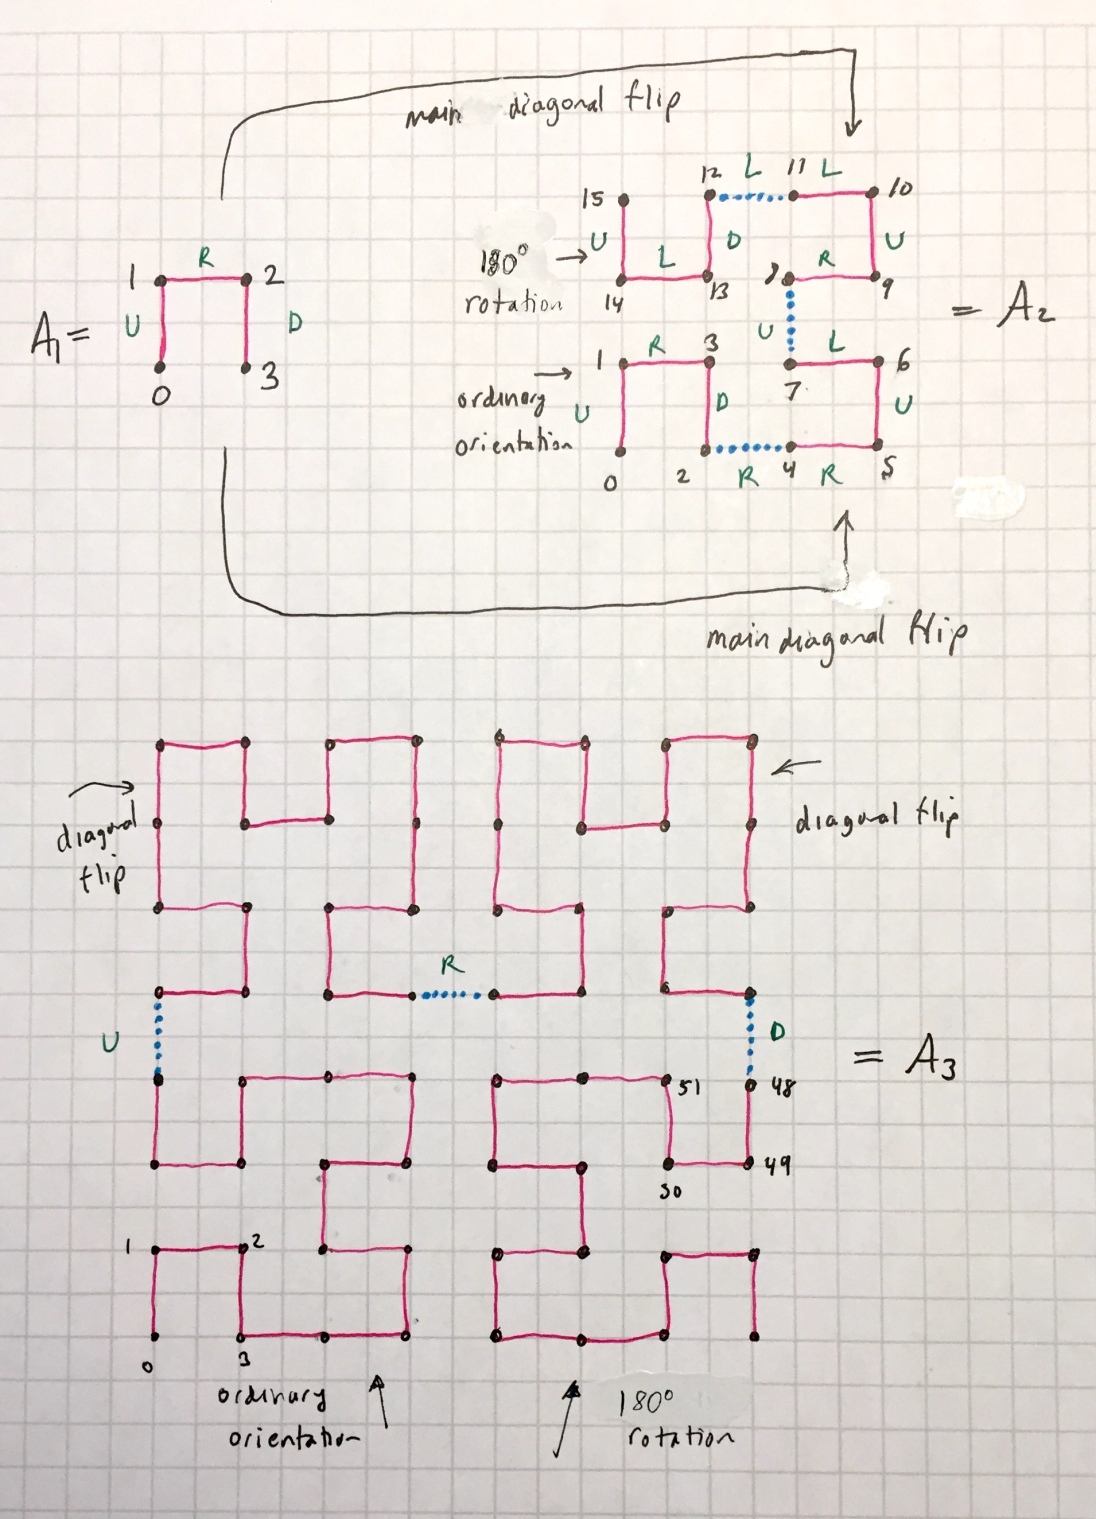 main diagonal flip
12 L 11 L 10
15
U D U
180°
rotation
L
R
14 13 8 9
= A2
1 R 2
A1=
U D
0 3
U
1 R 3 L 6
ordinary
orientation
U D 7 U
0 2 R 4 R 5
main diagonal flip
diagonal
flip
diagonal flip
R
U D
= A3
51 48
50 49
1 2
0 3
ordinary
orientation
180°
rotation